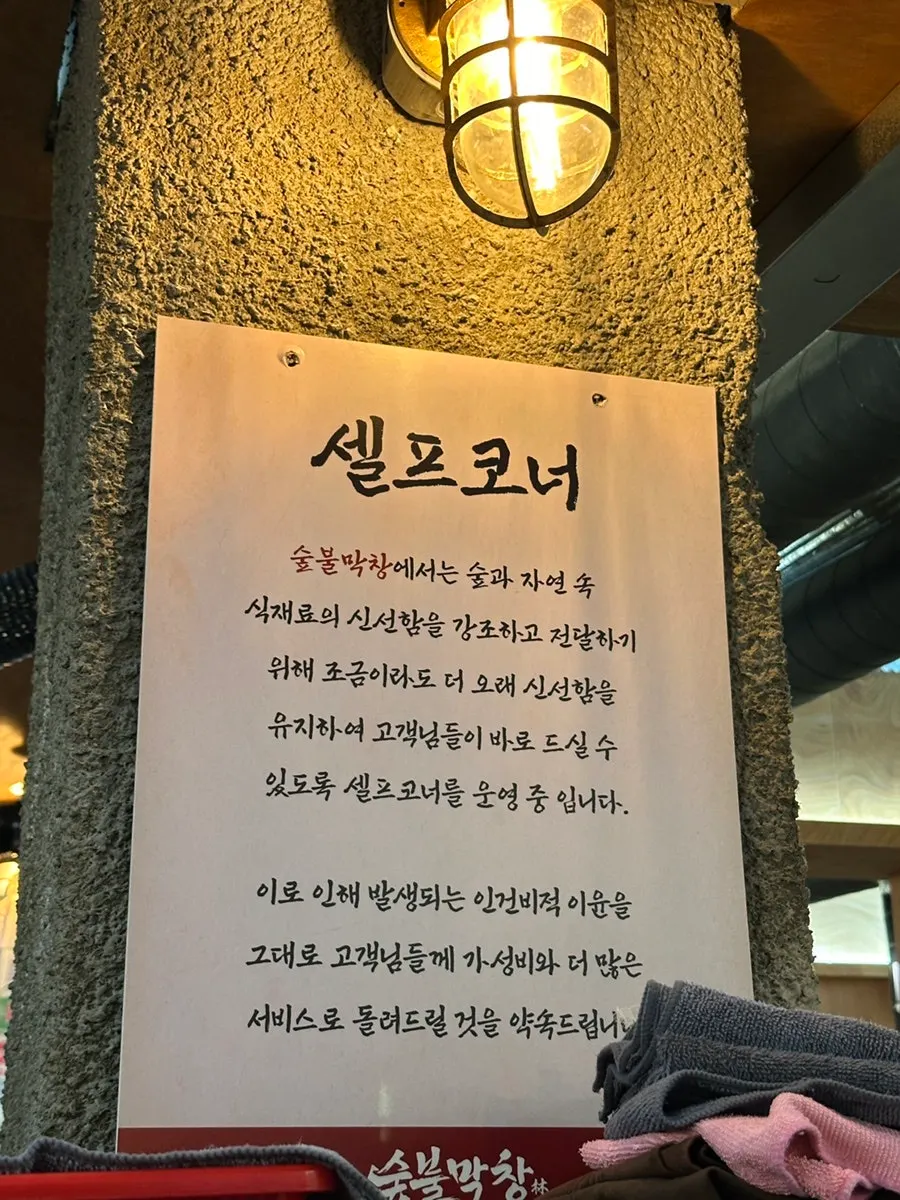 셀프코너
숲불막창에서는 숲과 자연 속
식재료의 신선함을 강조하고 전달하기
위해 조금이라도 더 오래 신선함을
유지하여 고객님들이 바로 드실 수
있도록 셀프코너를 운영 중 입니다.
이로 인해 발생되는 인건비적 이윤을
그대로 고객님들께 가성비와 더 많은
서비스로 돌려드릴 것을 약속드립니다
숲불막창 林